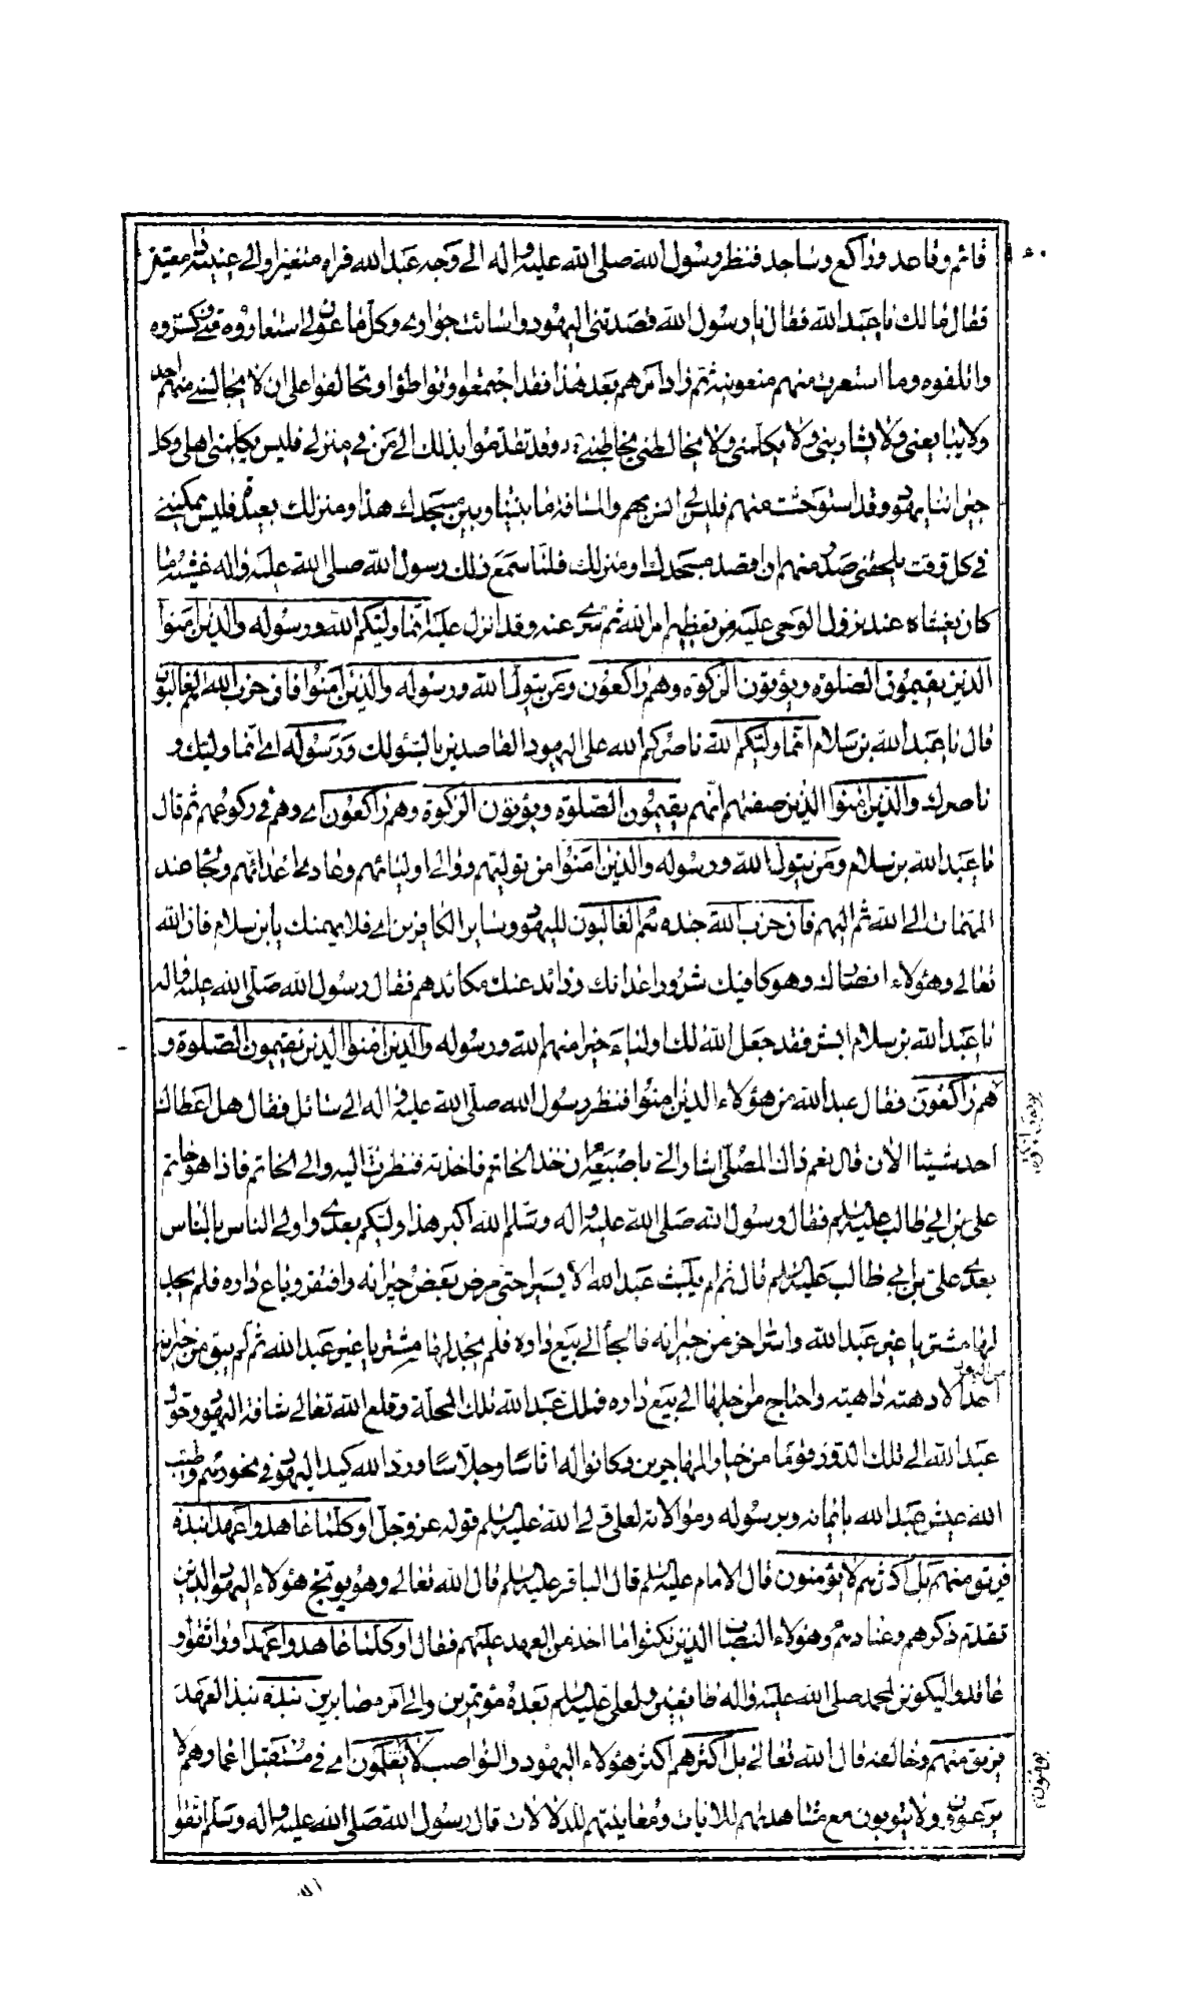 قائم وقاعد وراكع وساجد فنظر رسول الله صلى الله عليه واله الى وجه عبدالله فراه متغيرا والى عينيه
فقال مالك يا عبدالله فقال يا رسول الله قصدتنى اليهود واسائت جوارى وكل ماعون لى استعاروه منى كسروه
واتلفوه وما استعرت منهم منعونيه ثم زاد امرهم بعد هذا فقد اجتمعوا وتواطؤا وتحالفوا على ان لا يجالسنى منهم احد
ولا يبايعنى ولا يشاربنى ولا يكلمنى ولا يخالطنى وقد تقدموا بذلك الى من فى منزلى فليس يكلمنى اهلى وكل
جيراننا يهود وقد استوحشت منهم فليس لى انس بهم والمسافة ما بيننا وبين مسجدك هذا ومنزلك بعيدة فليس يمكننى
فى كل وقت يلحقنى ضيق صدر منهم ان اقصد مسجدك او منزلك فلما سمع ذلك رسول الله صلى الله عليه واله غشيه ما
كان يغشاه عند نزول الوحى عليه من تعظيم امر الله ثم سرى عنه وقد انزل عليه انما وليكم الله ورسوله والذين امنوا
الذين يقيمون الصلوة ويؤتون الزكوة وهم راكعون ومن يتول الله ورسوله والذين امنوا فان حزب الله هم الغالبون
قال يا عبدالله بن سلام انما وليكم الله ناصركم الله على اليهود القاصدين بالسوء لك ورسوله اى انما وليك و
ناصرك والذين امنوا الذين صفتهم انهم يقيمون الصلوة ويؤتون الزكوة وهم راكعون اى وهم فى ركوعهم ثم قال
يا عبدالله بن سلام ومن يتول الله ورسوله والذين امنوا من توليهم ووالى اوليائهم وعادى اعدائهم ولجأ عند
المهمات الى الله ثم اليهم فان حزب الله جنده هم الغالبون لليهود وسائر الكافرين اى فلا يهمنك يابن سلام فان الله
تعالى وهؤلاء انصارك وهو كافيك شرور اعدائك وذائد عنك مكائدهم فقال رسول الله صلى الله عليه واله
يا عبدالله بن سلام ابشر فقد جعل الله لك اولياء خيرا منهم الله ورسوله والذين امنوا الذين يقيمون الصلوة و
هم راكعون فقال عبدالله من هؤلاء الذين امنوا فنظر رسول الله صلى الله عليه واله الى سائل فقال هل اعطاك
احد شيئا الان قال نعم ذاك المصلى اشار الى باصبعه ان خذ الخاتم فاخذته فنظرت اليه والى الخاتم فاذا هو خاتم
على بن ابى طالب عليه السلم فقال رسول الله صلى الله عليه واله وسلم الله اكبر هذا وليكم بعدى واولى الناس بالناس
بعدى على بن ابى طالب عليه السلم قال ثم لم يلبث عبدالله الا يسيرا حتى مرض بعض جيرانه وافتقر وباع داره فلم يجد
لها مشتريا غير عبدالله واسر اخر من جيرانه فالجأ الى بيع داره فلم يجد لها مشتريا غير عبدالله ثم لم يبق من جيرانه
من اليهود
احد الا دهته داهية واحتاج من اجلها الى بيع داره فملك عبدالله تلك المحلة وقلع الله تعالى شافة اليهود وحول
عبدالله الى تلك الدور قوما من خيار المهاجرين وكانوا له اناسا وجلاسا ورد الله كيد اليهود فى نحورهم وطيب
الله عيش عبدالله بايمانه وبرسوله وموالاته لعلى ولى الله عليه السلم قوله عز وجل اوكلما عاهدوا عهدا نبذه
فريق منهم بل اكثرهم لا يؤمنون قال الامام عليه السلم قال الباقر عليه السلم قال الله تعالى وهو يوبخ هؤلاء اليهود الذين
تقدم ذكرهم وعنادهم وهؤلاء النصاب الذين نكثوا ما اخذ من العهد عليهم فقال اوكلما عاهدوا عهدا واثقوا و
عاقدوا ليكونن لمحمد صلى الله عليه واله طائعين ولعلى عليه السلم بعده مؤتمرين والى امره صابرين نبذه نبذ العهد
فريق منهم وخالفه قال الله تعالى بل اكثرهم اكثر هؤلاء اليهود والنواصب لا يعلمون اى فى مستقبل اعمارهم لا
يرعون ولا يتوبون مع مشاهدتهم للايات ومعاينتهم للدلالات قال رسول الله صلى الله عليه واله وسلم اتقوا
يؤتون الزكوة
يؤمنون